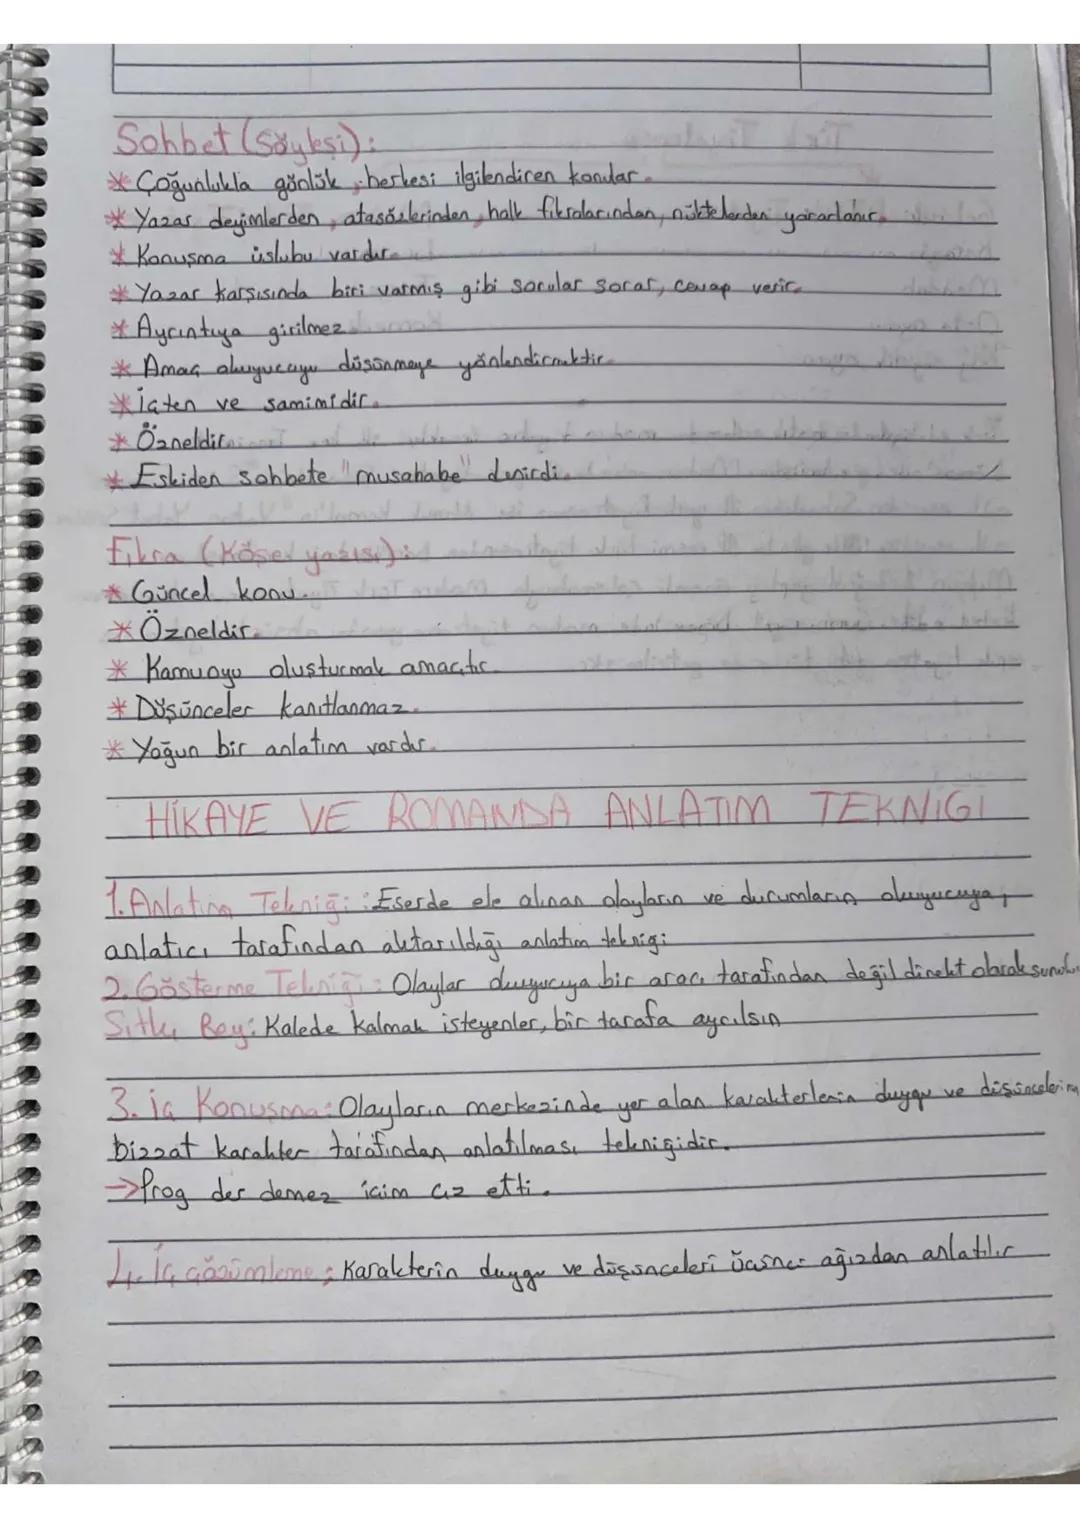 Sohbet (Söyleşi):
* Çoğunlukla günlük, herkesi ilgilendiren konular.
* Yazar deyimlerden, atasözlerinden, halk fıkralarından, nüktelerden yararlanır.
* Konuşma üslubu vardır.
* Yazar karşısında biri varmış gibi sorular sorar, cevap verir.
* Ayrıntıya girilmez
* Amaç okuyucuyu düşünmeye yönlendirmektir.
* İçten ve samimidir.
* Özneldir.
* Eskiden sohbete "musahabe" denirdi.
Fıkra (Köşe yazısı):
* Güncel konu.
* Özneldir.
* Kamuoyu oluşturmak amaçtır.
* Düşünceler kanıtlanmaz.
* Yoğun bir anlatım vardır.
HİKAYE VE ROMANDA ANLATIM TEKNİGİ
1. Anlatma Tekniği: Eserde ele alınan olayların ve durumların okuyucuya,
anlatıcı tarafından aktarıldığı anlatım teknigi
2. Gösterme Tekniği: Olaylar okuyucuya bir aracı tarafından değil direkt olarak sunulur
Sıtkı Bey: Kalede kalmak isteyenler, bir tarafa ayrılsın
3. İç Konuşma: Olayların merkezinde yer alan karakterlerin duygu ve düşüncelerinin
bizzat karakter tarafından anlatılması teknigidir.
→ Prag der demez içim cız etti.
4. İç çözümleme: Karakterin duygu ve düşünceleri üçüncü ağızdan anlatılır